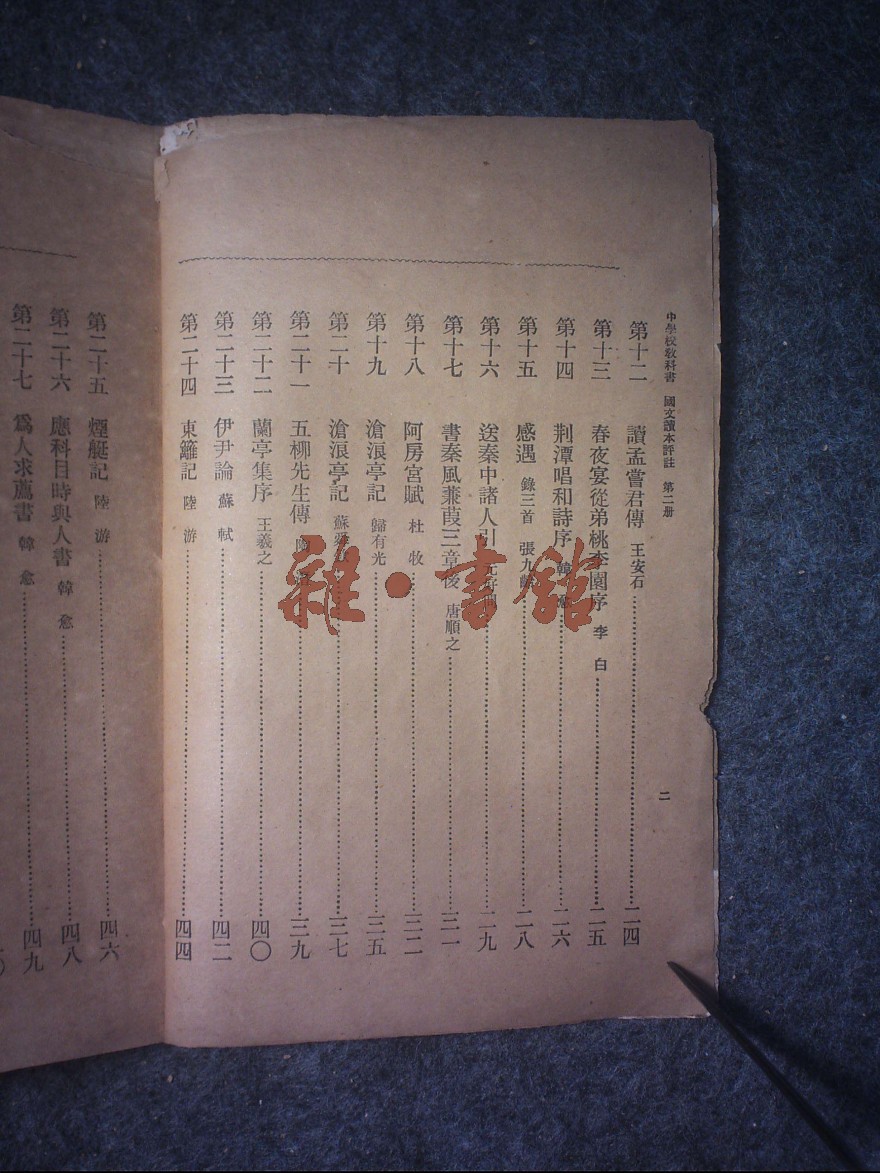 中學校教科書 國文讀本評註 第二册
二
第十二 讀孟嘗君傳 王安石 二四
第十三 春夜宴從弟桃李園序 李白 二五
第十四 荆潭唱和詩序 韓愈 二六
第十五 感遇 錄三首 張九齡 二八
第十六 送秦中諸人引 元好問 二九
第十七 書秦風蒹葭三章後 唐順之 三一
第十八 阿房宮賦 杜牧 三二
第十九 滄浪亭記 歸有光 三五
第二十 滄浪亭記 蘇 三七
第二十一 五柳先生傳 陶 三九
第二十二 蘭亭集序 王羲之 四〇
第二十三 伊尹論 蘇軾 四二
第二十四 東籬記 陸游 四四
第二十五 煙艇記 陸游 四六
第二十六 應科目時與人書 韓愈 四八
第二十七 爲人求薦書 韓愈 四九
雜·書館